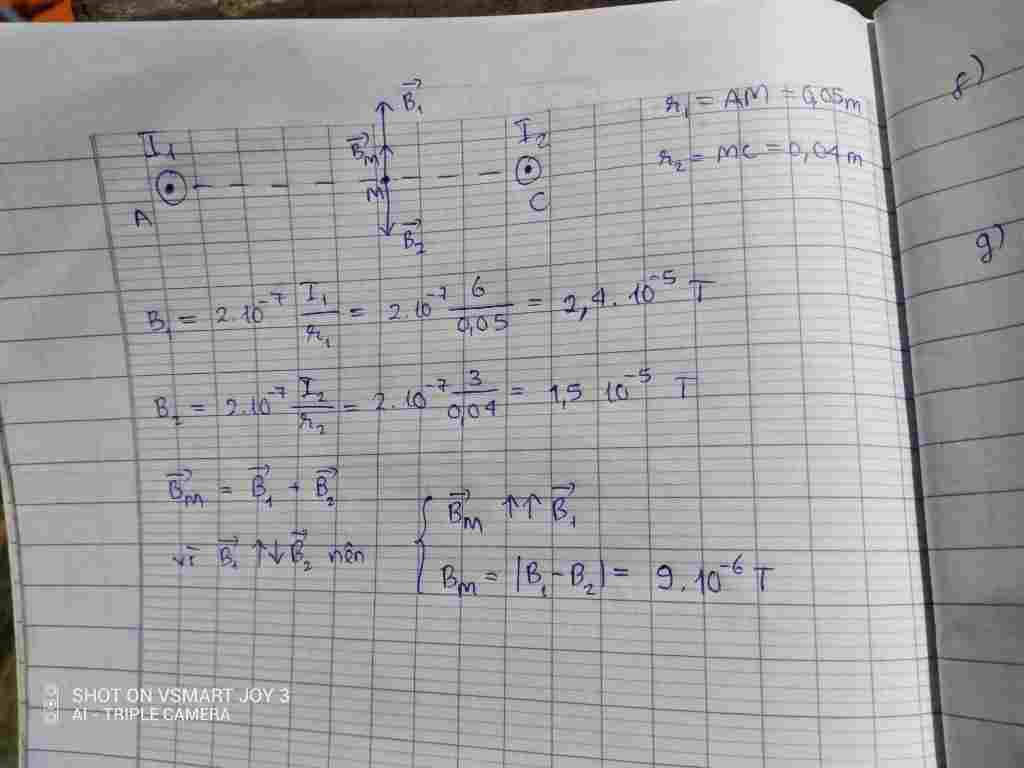 B₁⃗
r₁ = AM = 0,05m
I₁
B⃗m
I₂
r₂ = MC = 0,04m
A
M
C
B₂⃗
B₁ = 2.10⁻⁷ I₁/r₁ = 2.10⁻⁷ 6/0,05 = 2,4.10⁻⁵ T
B₂ = 2.10⁻⁷ I₂/r₂ = 2.10⁻⁷ 3/0,04 = 1,5 10⁻⁵ T
B⃗m = B⃗₁ + B⃗₂
vì B⃗₁ ↑↓ B⃗₂ nên
B⃗m ↑↑ B⃗₁
Bm = |B₁ - B₂| = 9.10⁻⁶ T
f)
g)
SHOT ON VSMART JOY 3
AI - TRIPLE CAMERA